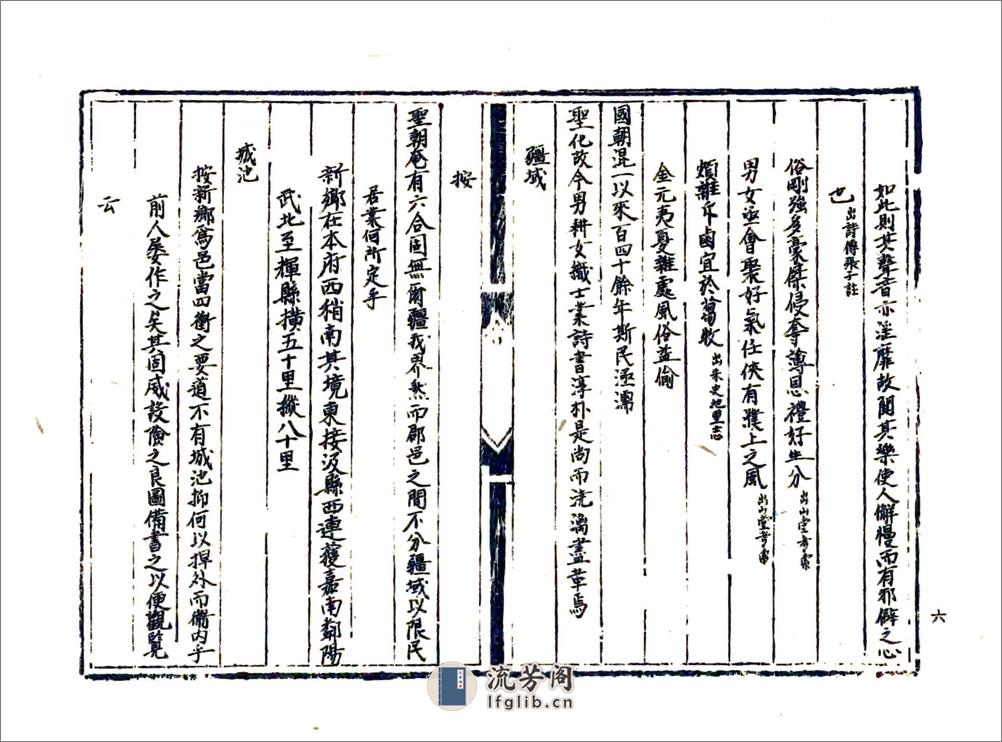 如此則其聲音亦淫靡故聞其樂使人懈慢而有邪僻之心
也出詩傳張子註
俗剛強多豪傑侵奪薄恩禮好生分出山堂考索
男女亟會聚好氣任俠有濮上之風出山堂考索
頗雜斥鹵宜於蒭牧出宋史地里志
金元夷夏雜處風俗益偷
國朝混一以來百四十餘年斯民涵濡
聖化故今男耕女織士業詩書淳朴是尚而澆漓盡革焉
疆域
按
聖朝奄有六合固無爾疆我界然而郡邑之間不分疆域以限民
居業何所定乎
新鄉在本府西稍南其境東接汲縣西連獲嘉南鄰陽
武北至輝縣橫五十里摐八十里
城池
按新鄉為邑當四衝之要道不有城池抑何以捍外而衛内乎
前人屡作之矣其固威設險之良圖備書之以便觀覽
云
六
流芳阁
lfglib.cn